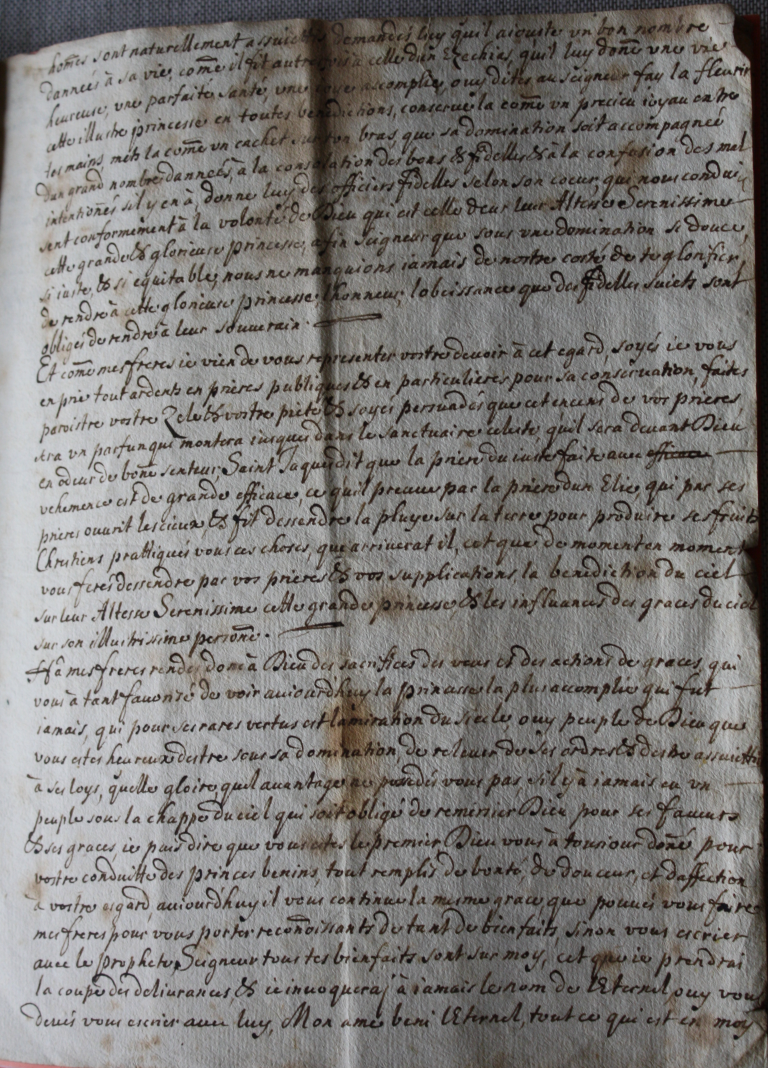 hom̃es sont naturellement assuietis demandés luy qu'il aiouste un bon nombre
d'années à sa vie, com̃e il fit autrefois à celle d'un Ezechias, quil luy don̄e une vie
heureuse, une parfaite santé, une ioye acomplie, ouy dites au seigneur fay la fleurir
cette illustre princesse en toutes benedictions, conserve la com̃e un precieu ioyau entre
tes mains mets la com̃e un cachet sur ton bras que sa domination soit accompagnée
d'un grand nombre d'annees, à la consolation des bons & fidelles & à la confusion des mal
intentionés s'il y en à, donne luy des officiers fidelles selon son coeur, qui nous condui
sent conformement à la volonté de Dieu qui est celle de leur Altesse Serenissime
cette grande & glorieuse princesse, afin Seigneur que sous une domination si douce,
si iuste, & si equitable, nous ne manquions iamais de nostre costé de te glorifier,
de rendre à cette glorieuse princesse l'honneur, l'obeissance que des fidelles suiets sont
obligés de rendre à leur souverain.
Et com̃e mes freres ie vien de vous representer vostre devoir à cet egard, soyés ie vous
en prie tout ardents en prieres publiques & en particulieres pour sa conservation, faites
paroistre vostre Zele & vostre pieté & soyés persuadés que cet encens de vos prieres
sera un parfun qui montera iusques dans le sanctuaire celeste, quil sera devant Dieu
en odeur de bon̄e senteur, Saint Jaques dit que la priere du iuste faite avec efficace
vehemence est de grande efficace, ce quil preuve par la priere d'un Elie, qui par ses
prieres ouvrit les cieux, & fit dessendre la pluye sur la terre pour produire ses fruits
Chrestiens prattiqués vous ces choses, que arriverat il, cet que de moment en moment
vous ferés dessendre par vos prieres & vos supplications la benediction du ciel
sur leur Altesse Serenissime cette grande princesse, & les influances des graces du ciel
sur son illustrissime person̄e.
Ha mes freres rendes donc à Dieu des sacrifices des veus et des actions de graces, qui
vous à tant favorisé de voir auiourd'huy la princesse la plus acomplie qui fut
iamais, qui pour ses rares vertus est l'amiration du siecle ouy peuple de Dieu que
vous estes heureux d'estre sous sa domination, de relever de ses ordres & d'estre assuiettis
à ses loys, quelle gloire quel avantage ne possedés vous pas s'il y à iamais eu un
peuple sous la chappe du ciel qui soit obligé de remersier Dieu pour ses faveurs
& ses graces, ie puis dire que vous estes le premier Dieu vous à tousiour don̄é pour
vostre conduitte des princes benins, tout remplis de bonté, de douceur, et d'affection
à vostre esgard, auiourd'huy il vous continue la mesme grace que pouvés vous faire
mes freres pour vous porter recon̄oissants de tant de bienfaits, sinon vous escrier
avec le prophete, Seigneur tous tes bienfaits sont sur moy, cet que ie prendrai
la coupe des delivrances & ie invoqueraj à iamais le nom de l'Eternel, ouy vous
devés vous escrier avec luy, Mon ame beni l'Eternel, tout ce qui est en moy